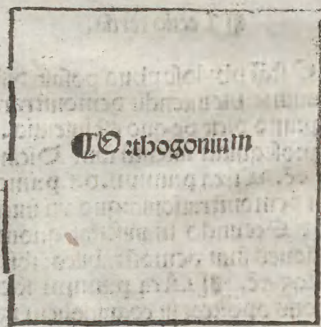 ¶Orthogonium